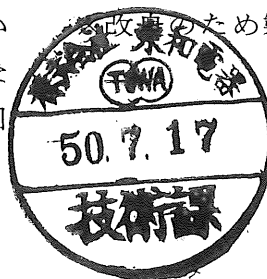 改良のため
株式会社 東和電器
TOWA
50. 7. 17
技術課